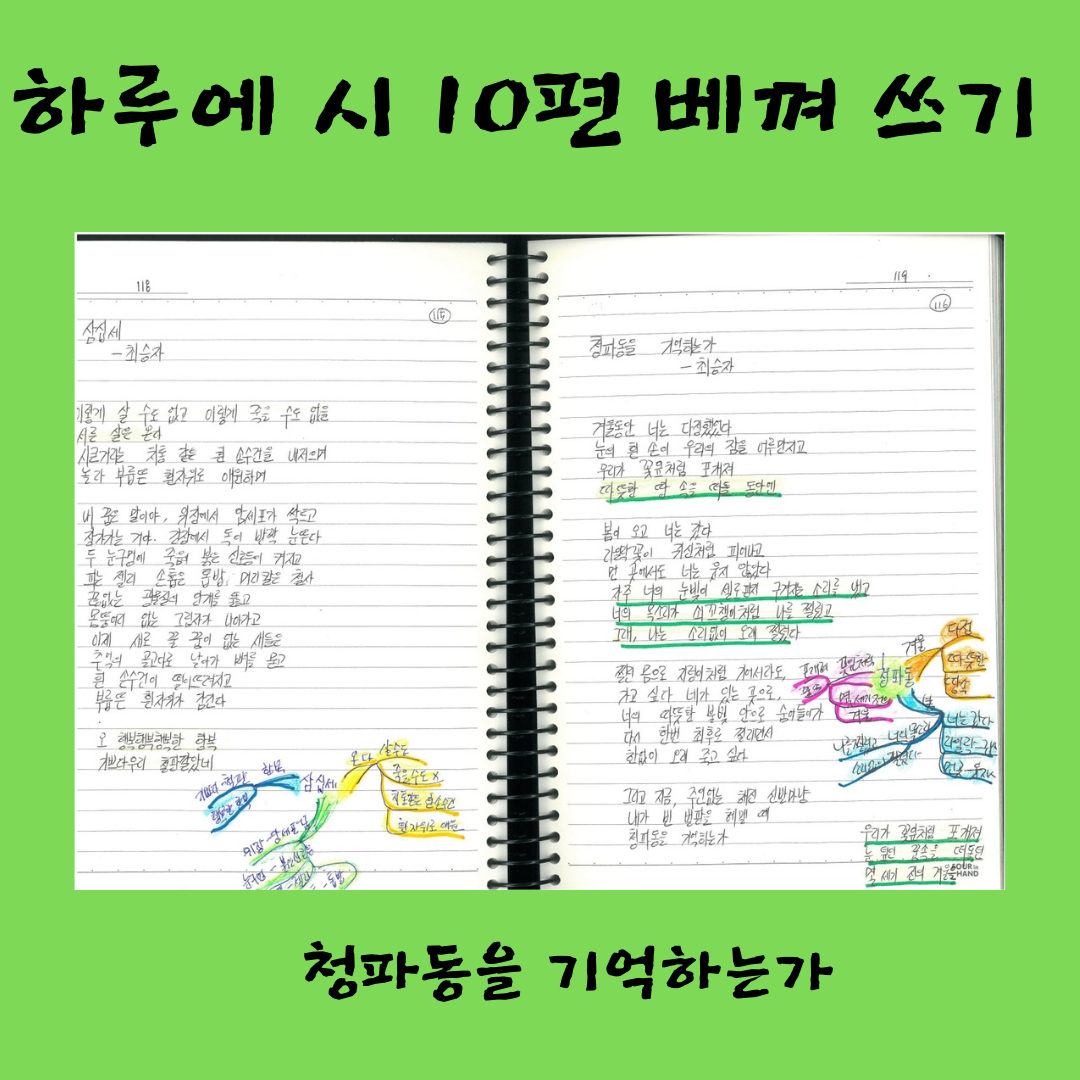 하루에 시 10편 베껴 쓰기
118
115
삼십세
-최승자
이렇게 살 수도 없고 이렇게 죽을 수도 없을
서른 살은 온다
시큰거리는 치통 같은 흰 손수건을 내저으며
놀라 부릅뜬 흰자위로 애원하며
내 꿈은 말이야, 위장에서 암세포가 싹트고
장가가는 거야, 간장에서 독이 반짝 눈뜬다
두 눈구멍에 죽음의 붉은 신호등이 켜지고
피는 젤리 손톱은 톱밥, 머리칼은 철사
끝없는 광물질의 안개를 뚫고
몸뚱어리 없는 그림자가 나아가고
이제 새로 꿀 꿈이 없는 새들은
추억의 골고다로 날아가 뼈를 묻고
흰 손수건이 떨어뜨려지고
부릅뜬 흰자위가 감긴다
오 행복행복행복한 항복
기쁘다우리 철판깔았네
삼십세
온다
살수도
죽을수도 x
흰자위로 애원
항복
철판
119
116
청파동을 기억하는가
-최승자
겨울동안 너는 다정했었다
눈의 흰 손이 우리의 잠을 어루만지고
우리가 꽃잎처럼 포개져
따뜻한 땅 속을 떠돌 동안엔
봄이 오고 너는 갔다
라일락꽃이 귀신처럼 피어나고
먼 곳에서도 너는 웃지 않았다
자주 너의 눈빛이 셀로판지 구겨지는 소리를 냈고
너의 목소리가 쇠꼬챙이처럼 나를 찔렀고
그래, 나는 소리없이 오래 찔렸다
찔린 몸으로 지렁이처럼 기어서라도,
가고 싶다 네가 있는 곳으로,
너의 따뜻한 불빛 안으로 숨어들어가
다시 한번 최후로 찔리면서
한없이 오래 죽고 싶다
그리고 지금, 주인없는 해진 신발마냥
내가 빈 벌판을 헤맬 때
청파동을 기억하는가
청파동
겨울
다정
따뜻한
땅속
봄
너는 갔다
꽃잎처럼
포개져
겨울
우리가 꽃잎처럼 포개져
눈 덮인 꿈속을 떠돌던
몇 세기 전의 겨울을
청파동을 기억하는가